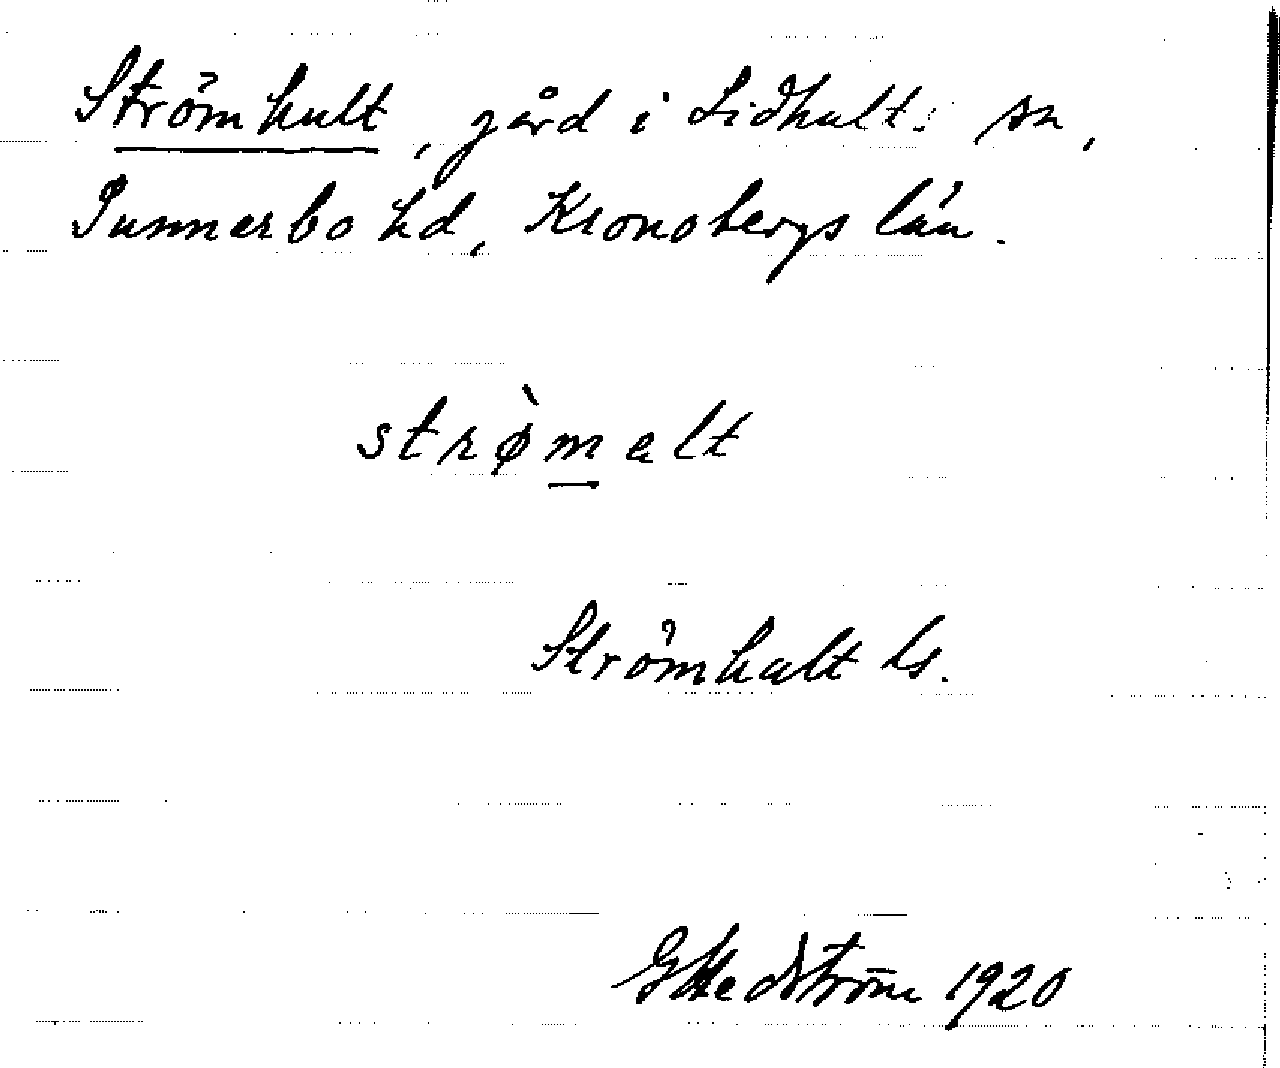 Strömhult, gård i Lidhult. sn,
Sunnerbo hd, Kronobergs län.
strø̀melt
Strömhult ls.
G Hedström 1920